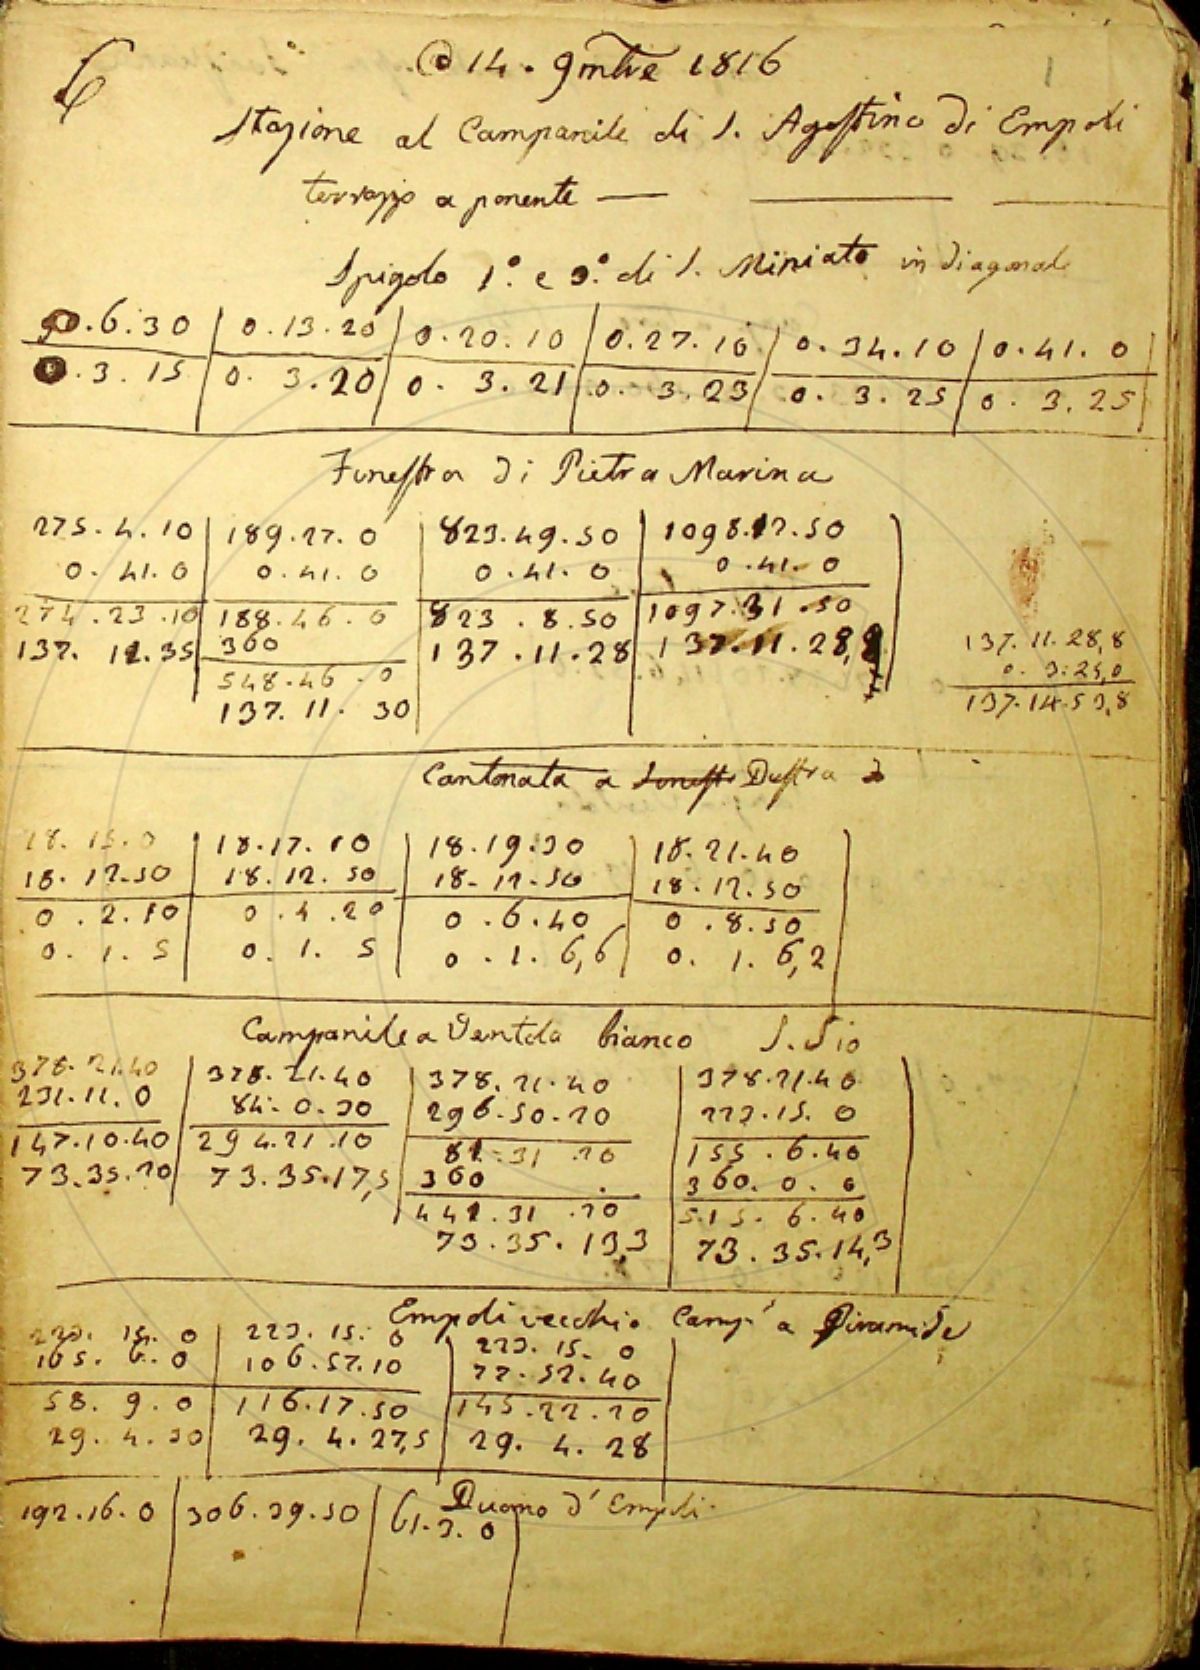 6
@ 14. 9mbre 1816
Stazione al Campanile di S. Agostino di Empoli
terrazzo a ponente —
Spigolo 1.° e 3.° di S. Miniato in diagonale
0.6.30 | 0.13.20 | 0.20.10 | 0.27.10 | 0.34.10 | 0.41.0
0.3.15 | 0.3.20 | 0.3.21 | 0.3.23 | 0.3.25 | 0.3.25
Finestra di Pietra Marina
275.4.10 | 189.27.0 | 823.49.50 | 1098.12.50
0.41.0 | 0.41.0 | 0.41.0 | 0.41.0
274.23.10 | 188.46.0 | 823.8.50 | 1097.31.50
137.11.35 | 360 | 137.11.28 | 137.11.28,8
548.46.0
137.11.30
137.11.28,8
0.3.25,0
137.14.53,8
Cantonata a Destra
18.15.0 | 18.17.10 | 18.19.30 | 18.21.40
18.12.50 | 18.12.50 | 18.12.50 | 18.12.50
0.2.10 | 0.4.20 | 0.6.40 | 0.8.50
0.1.5 | 0.1.5 | 0.1.6,6 | 0.1.6,2
Campanile a Ventola bianco S.
378.21.40 | 378.21.40 | 378.21.40 | 378.21.40
231.11.0 | 84.0.30 | 296.50.20 | 223.15.0
147.10.40 | 294.21.10 | 81.31.20 | 155.6.40
73.35.20 | 73.35.17,5 | 360 | 360.0.0
441.31.20 | 515.6.40
73.35.13,3 | 73.35.14,3
Empoli vecchio Camp. a Piramide
223.15.0 | 223.15.0 | 223.15.0
165.6.0 | 106.57.10 | 77.52.40
58.9.0 | 116.17.50 | 145.22.20
29.4.30 | 29.4.27,5 | 29.4.28
Duomo d'Empoli
192.16.0 | 306.39.50 | 61.3.0